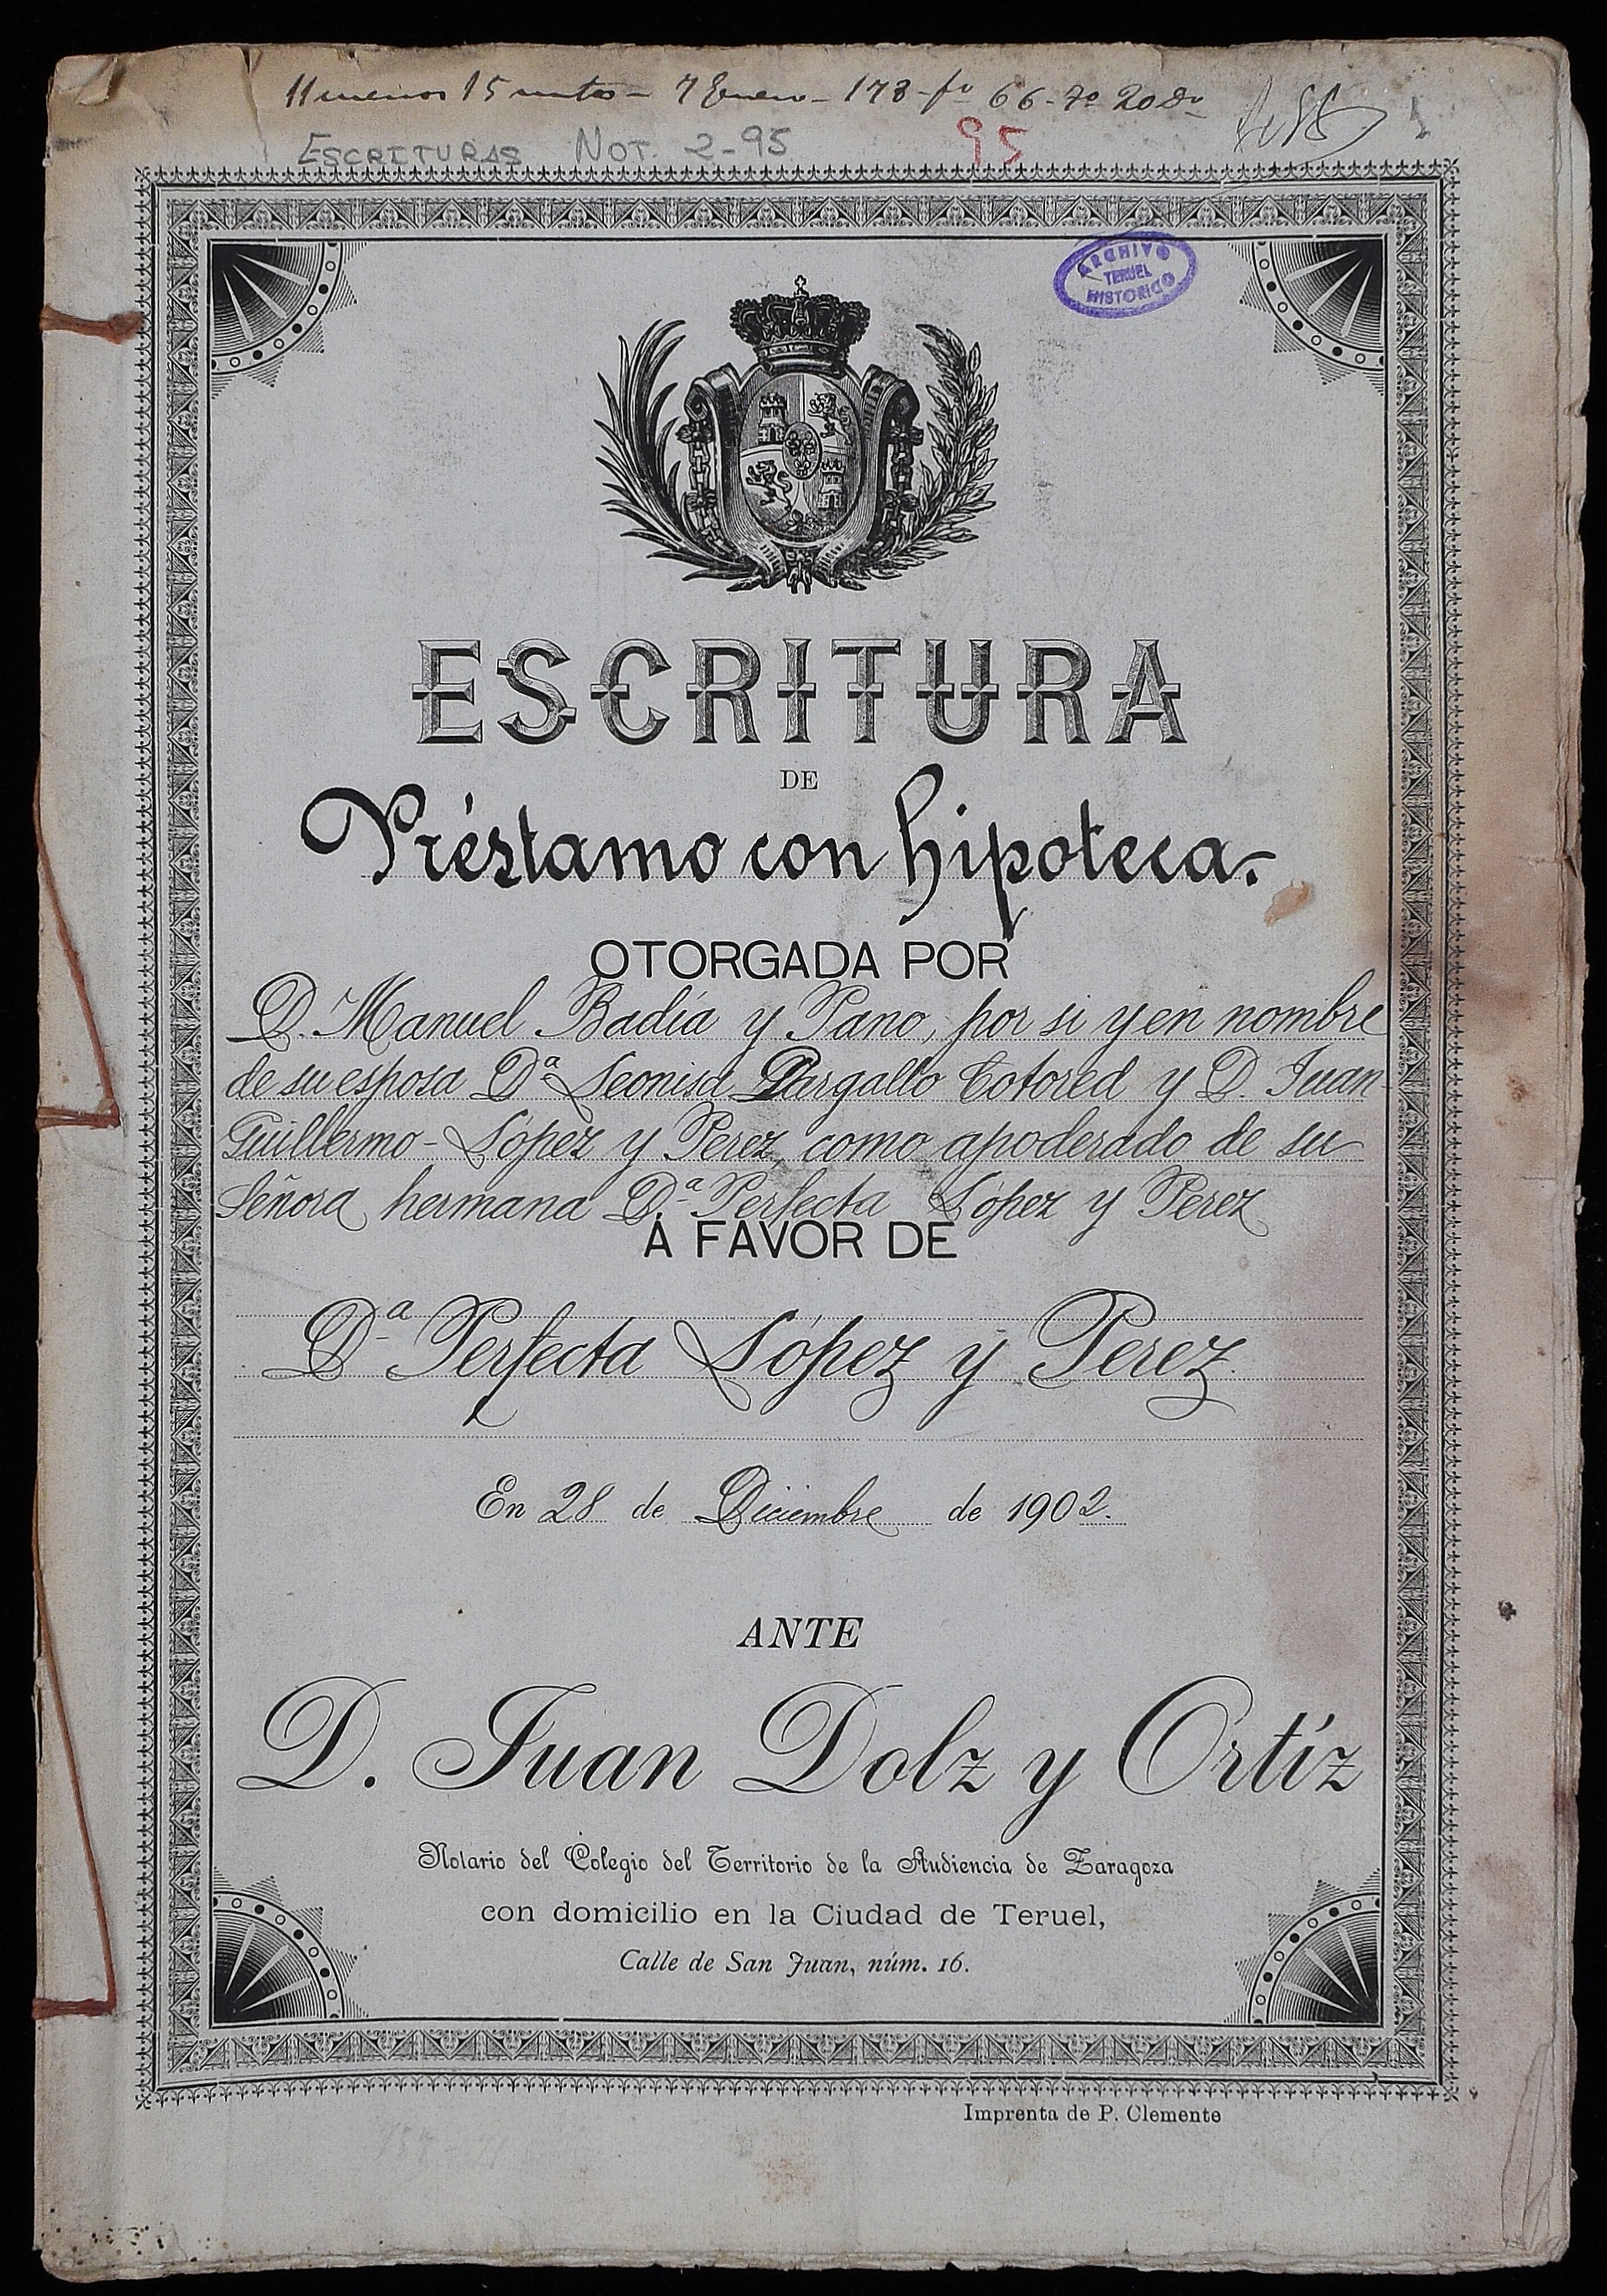 11 menos 15 mtos - 7 Enero - 178 - fº 66 - 7º 20 Dº
ESCRITURAS NOT. 2-95
95
ARCHIVO
TERUEL
HISTORICO
ESCRITURA
DE
Préstamo con hipoteca.
OTORGADA POR
D. Manuel Badía y Pano, por si y en nombre
de su esposa Dª Leonisa Pargallo Cotored y D. Juan
Guillermo López y Perez, como apoderado de su
Señora hermana Dª Perfecta López y Perez
Á FAVOR DE
Dª Perfecta López y Perez.
En 28 de Diciembre de 1902.
ANTE
D. Juan Dolz y Ortíz
Notario del Colegio del Territorio de la Audiencia de Zaragoza
con domicilio en la Ciudad de Teruel,
Calle de San Juan, núm. 16.
Imprenta de P. Clemente